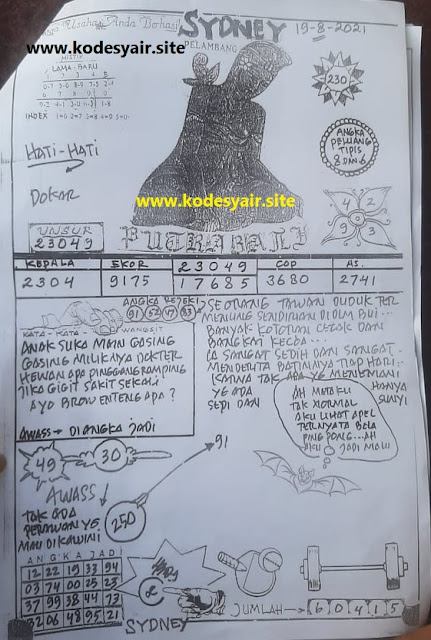 Usaha Anda Berhasil
SYDNEY
19-8-2021
www.kodesyair.site
PELAMBANG
MISTIK
LAMA - BARU
1 2 3 4 5
6 7 8 9
INDEX 1=0 2=7 3=8 4=9 5=6
230
ANGKA
PELUANG
TIPIS
8 DAN 6
HATI-HATI
DOKAR
www.kodesyair.site
4 2
9 3
UNSUR
23049
PUTRA BALI
KEPALA EKOR 23049 COD AS.
2304 9175 17685 3680 2741
ANGKA REJEKI
91 52 47 83
KATA - KATA WANGSIT
ANAK SUKA MAIN GASING
GASING MILIKNYA DOKTER
HEWAN APA PINGGANG RAMPING
JIKA GIGIT SAKIT SEKALI
AYO BROW ENTENG APA ?
AWASS → DI ANGKA JADI
SEORANG TAWAN DUDUK TER
MENUNG SENDIRIAN DI DLM BUI...
BANYAK KOTORAN CECAK DAN
BANGKAI KECOA...
IA SANGAT SEDIH DAN SANGAT-
MENDERITA BATINNYA TIAP HARI..
KARNA TAK ADA YG MENEMANI
YE ADA HANYA
SEPI DAN SUNYI
AH MATAKU
TAK NORMAL
AKU LIHAT APEL
TERNYATA BOLA
PING PONG...AH
AKU JADI MALU
49 30
91
AWASS
TAK ADA
PERAWAN YG
MAU DIKAWINI
250
ANGKA JADI
12 22 19 33 94
03 74 00 25 23
37 99 38 44 73
32 06 48 95 21
2
SYDNEY
JUMLAH → 6 0 4 1 5